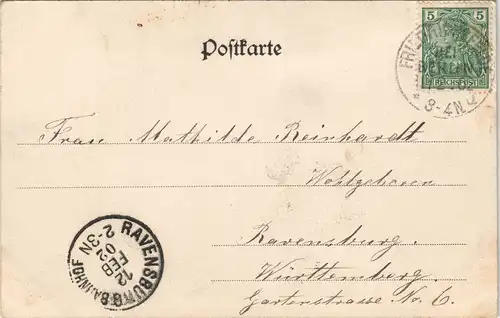 Postkarte
5 5
REICHSPOST
BERLIN
3-4N
Frau Mathilde Reinhardt
Wohlgeboren
Ravensburg.
Württemberg.
Gartenstrasse No. 6.
RAVENSBURG BAHNHOF
12 FEB 02
2-3N